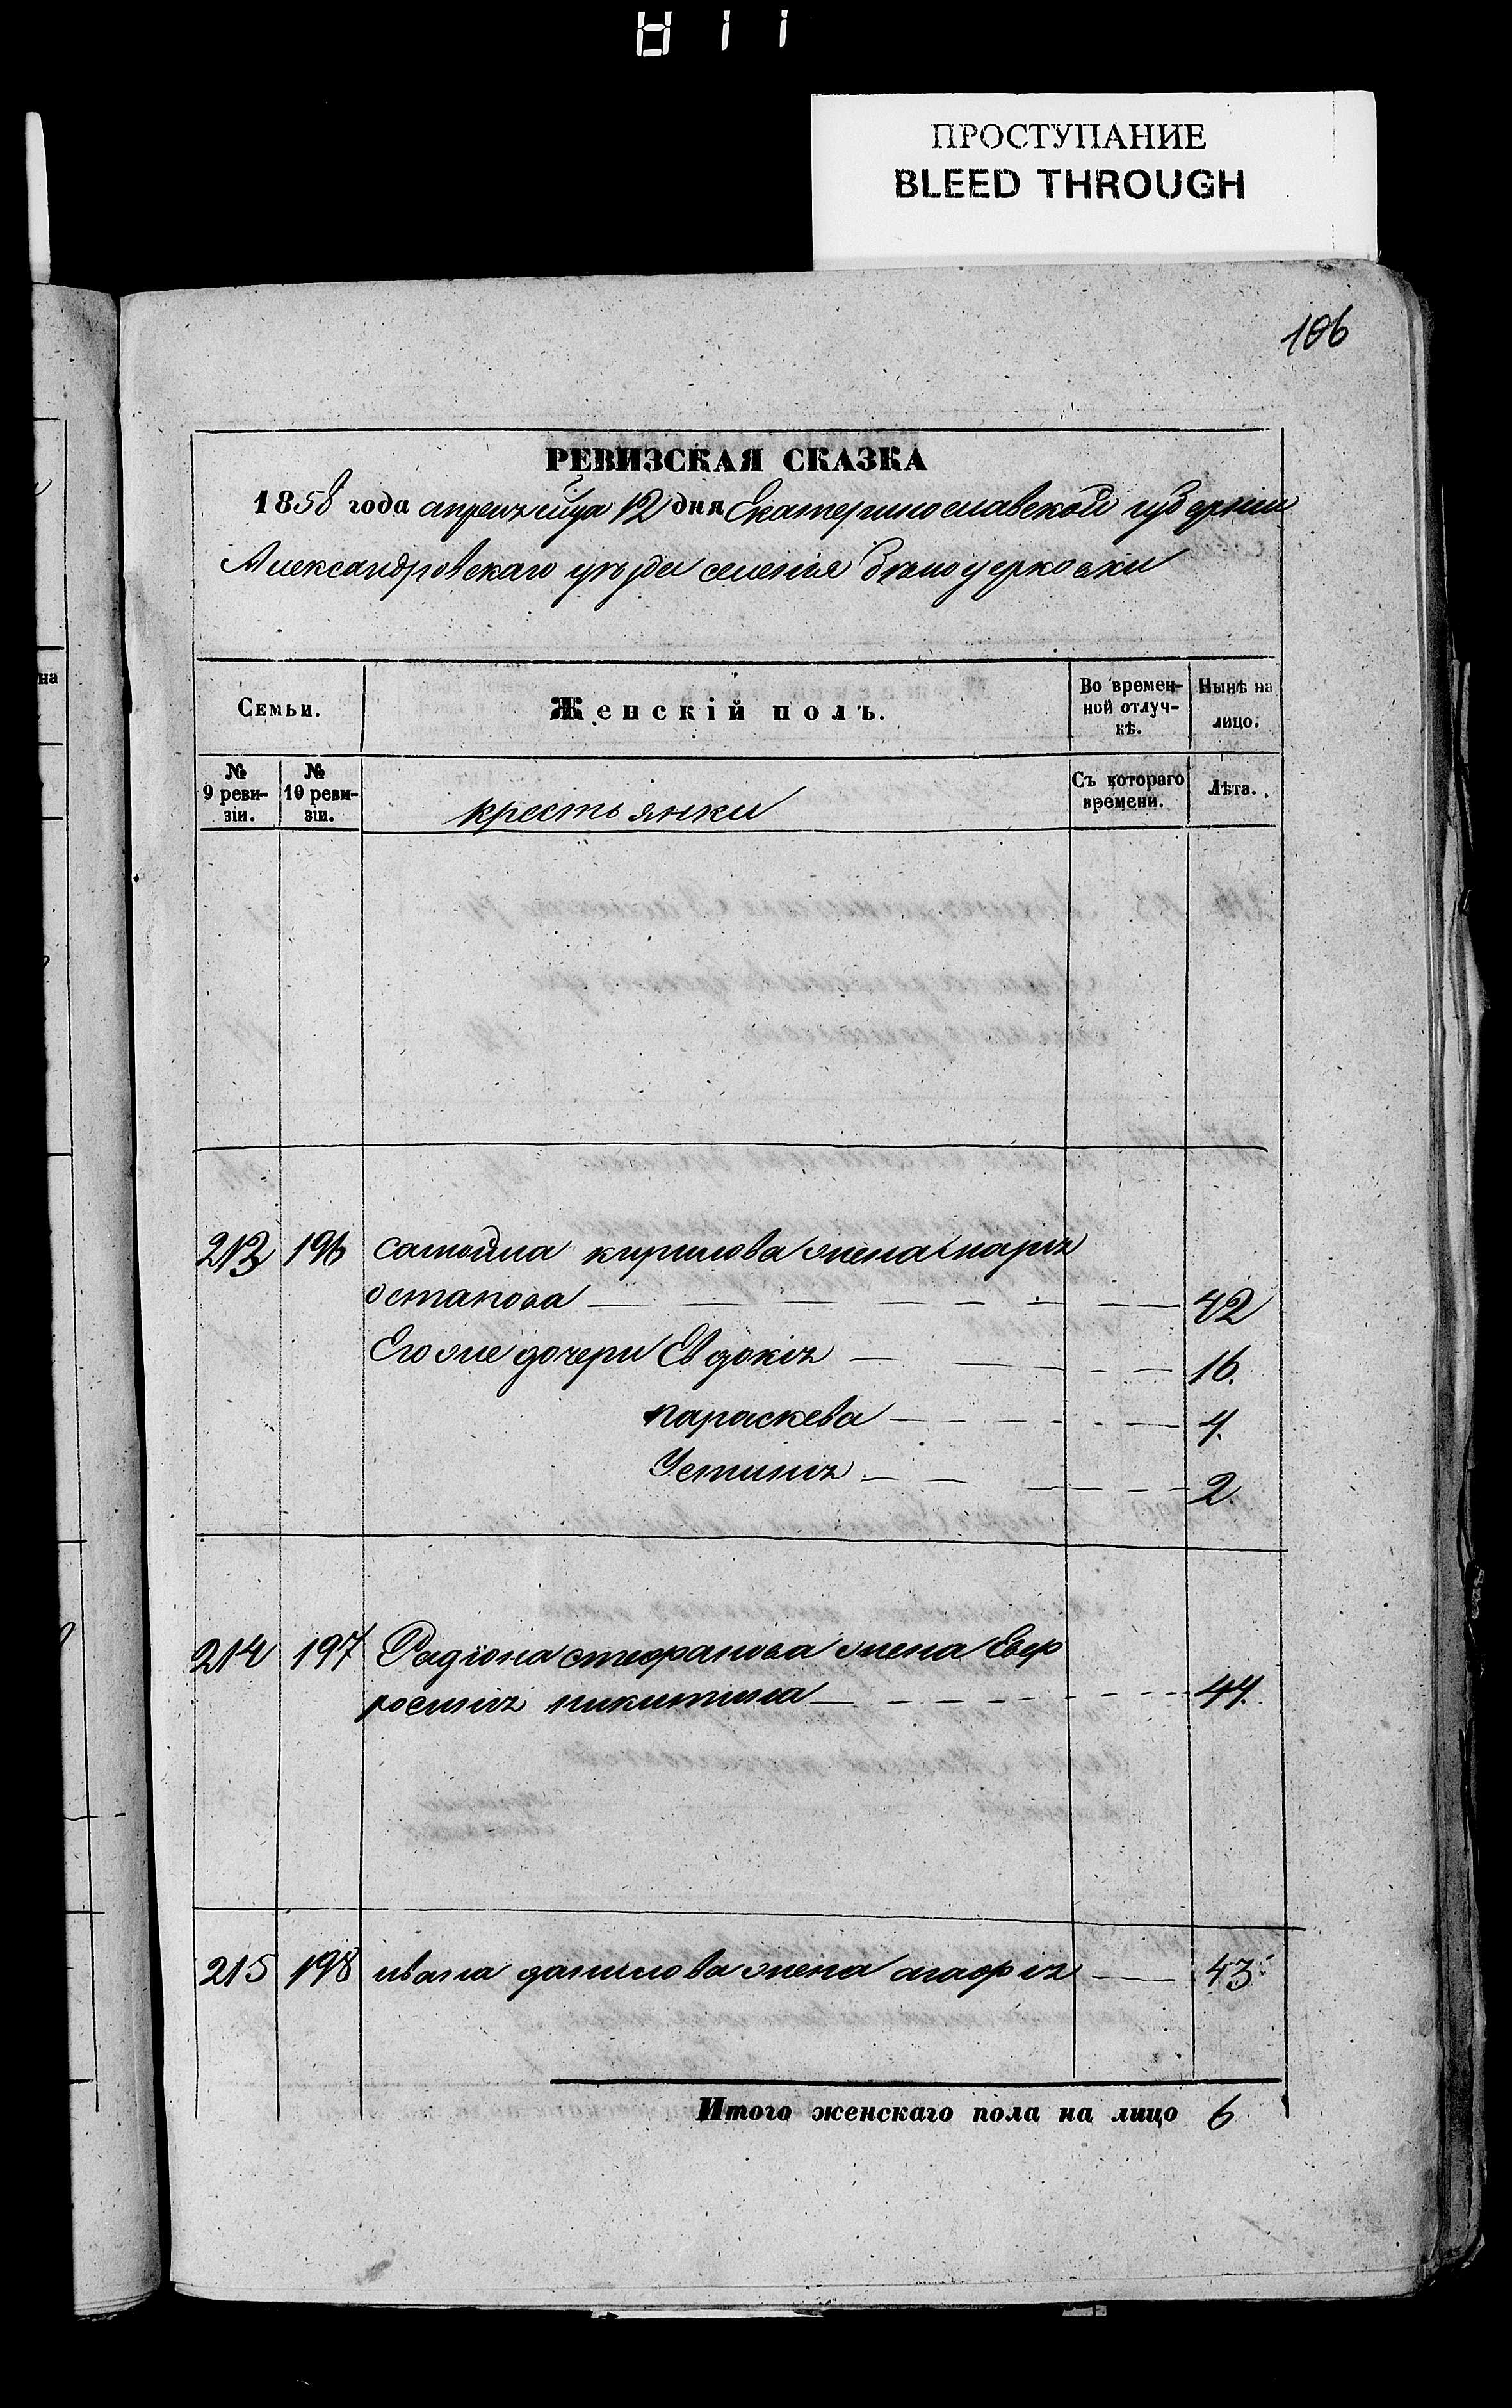 ПРОСТУПАНИЕ
BLEED THROUGH
106
РЕВИЗСКАЯ СКАЗКА
1858 года апреля 12 дня Екатеринославской губернии
Александровскаго уѣзда селенія Бѣлоцерковки
Семьи.
Женскій полъ.
Во времен-
ной отлуч-
кѣ.
Нынѣ на
лицо.
№
9 реви-
зіи.
№
10 реви-
зіи.
крестьянки
Съ котораго
времени.
Лѣта.
213 196 самойла кирилова жена марія
остапова 42
Его же дочери Евдокія 16.
параскева 4.
Устинія 2.
214 197 Радіона стефанова жена Евф
росинія никитина 44.
215 198 ивана данилова жена агафія 43
Итого женскаго пола на лицо 6
на